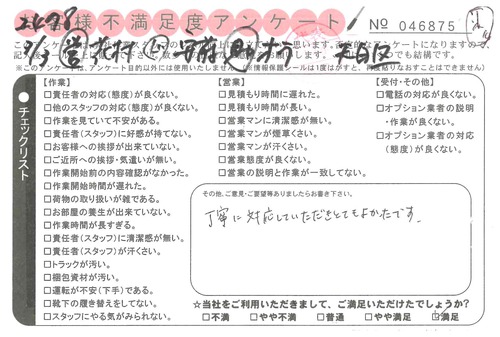 様不満足度アンケート! No 046875
※このアンケートは、アンケート目的以外には使用いたしません。
チェックリスト
【作業】
□責任者の対応(態度)が良くない。
□他のスタッフの対応(態度)が良くない。
□作業を見ていて不安がある。
□責任者(スタッフ)に好感が持てない。
□お客様への挨拶が出来ていない。
□ご近所への挨拶・気遣いが無い。
□作業開始前の内容確認がなかった。
□作業開始時間が遅れた。
□荷物の取り扱いが雑である。
□お部屋の養生が出来ていない。
□作業時間が長すぎる。
□責任者(スタッフ)に清潔感が無い。
□責任者(スタッフ)が汗くさい。
□トラックが汚い。
□梱包資材が汚い。
□運転が不安(下手)である。
□靴下の履き替えをしてない。
□スタッフにやる気がみられない。
【営業】
□見積もり時間に遅れた。
□見積もり時間が長い。
□営業マンに清潔感が無い。
□営業マンが煙草くさい。
□営業マンが汗くさい。
□営業態度が良くない。
□営業の説明と作業が一致してない。
【受付・その他】
□電話の対応が良くない。
□オプション業者の説明
・作業が良くない。
□オプション業者の対応
(態度)が良くない。
その他、ご意見・ご要望等ありましたらお書き下さい。
丁寧に対応していただきとてもよかたです。
☆当社をご利用いただきまして、ご満足いただけたでしょうか?
□不満 □やや不満 □普通 □やや満足 □満足